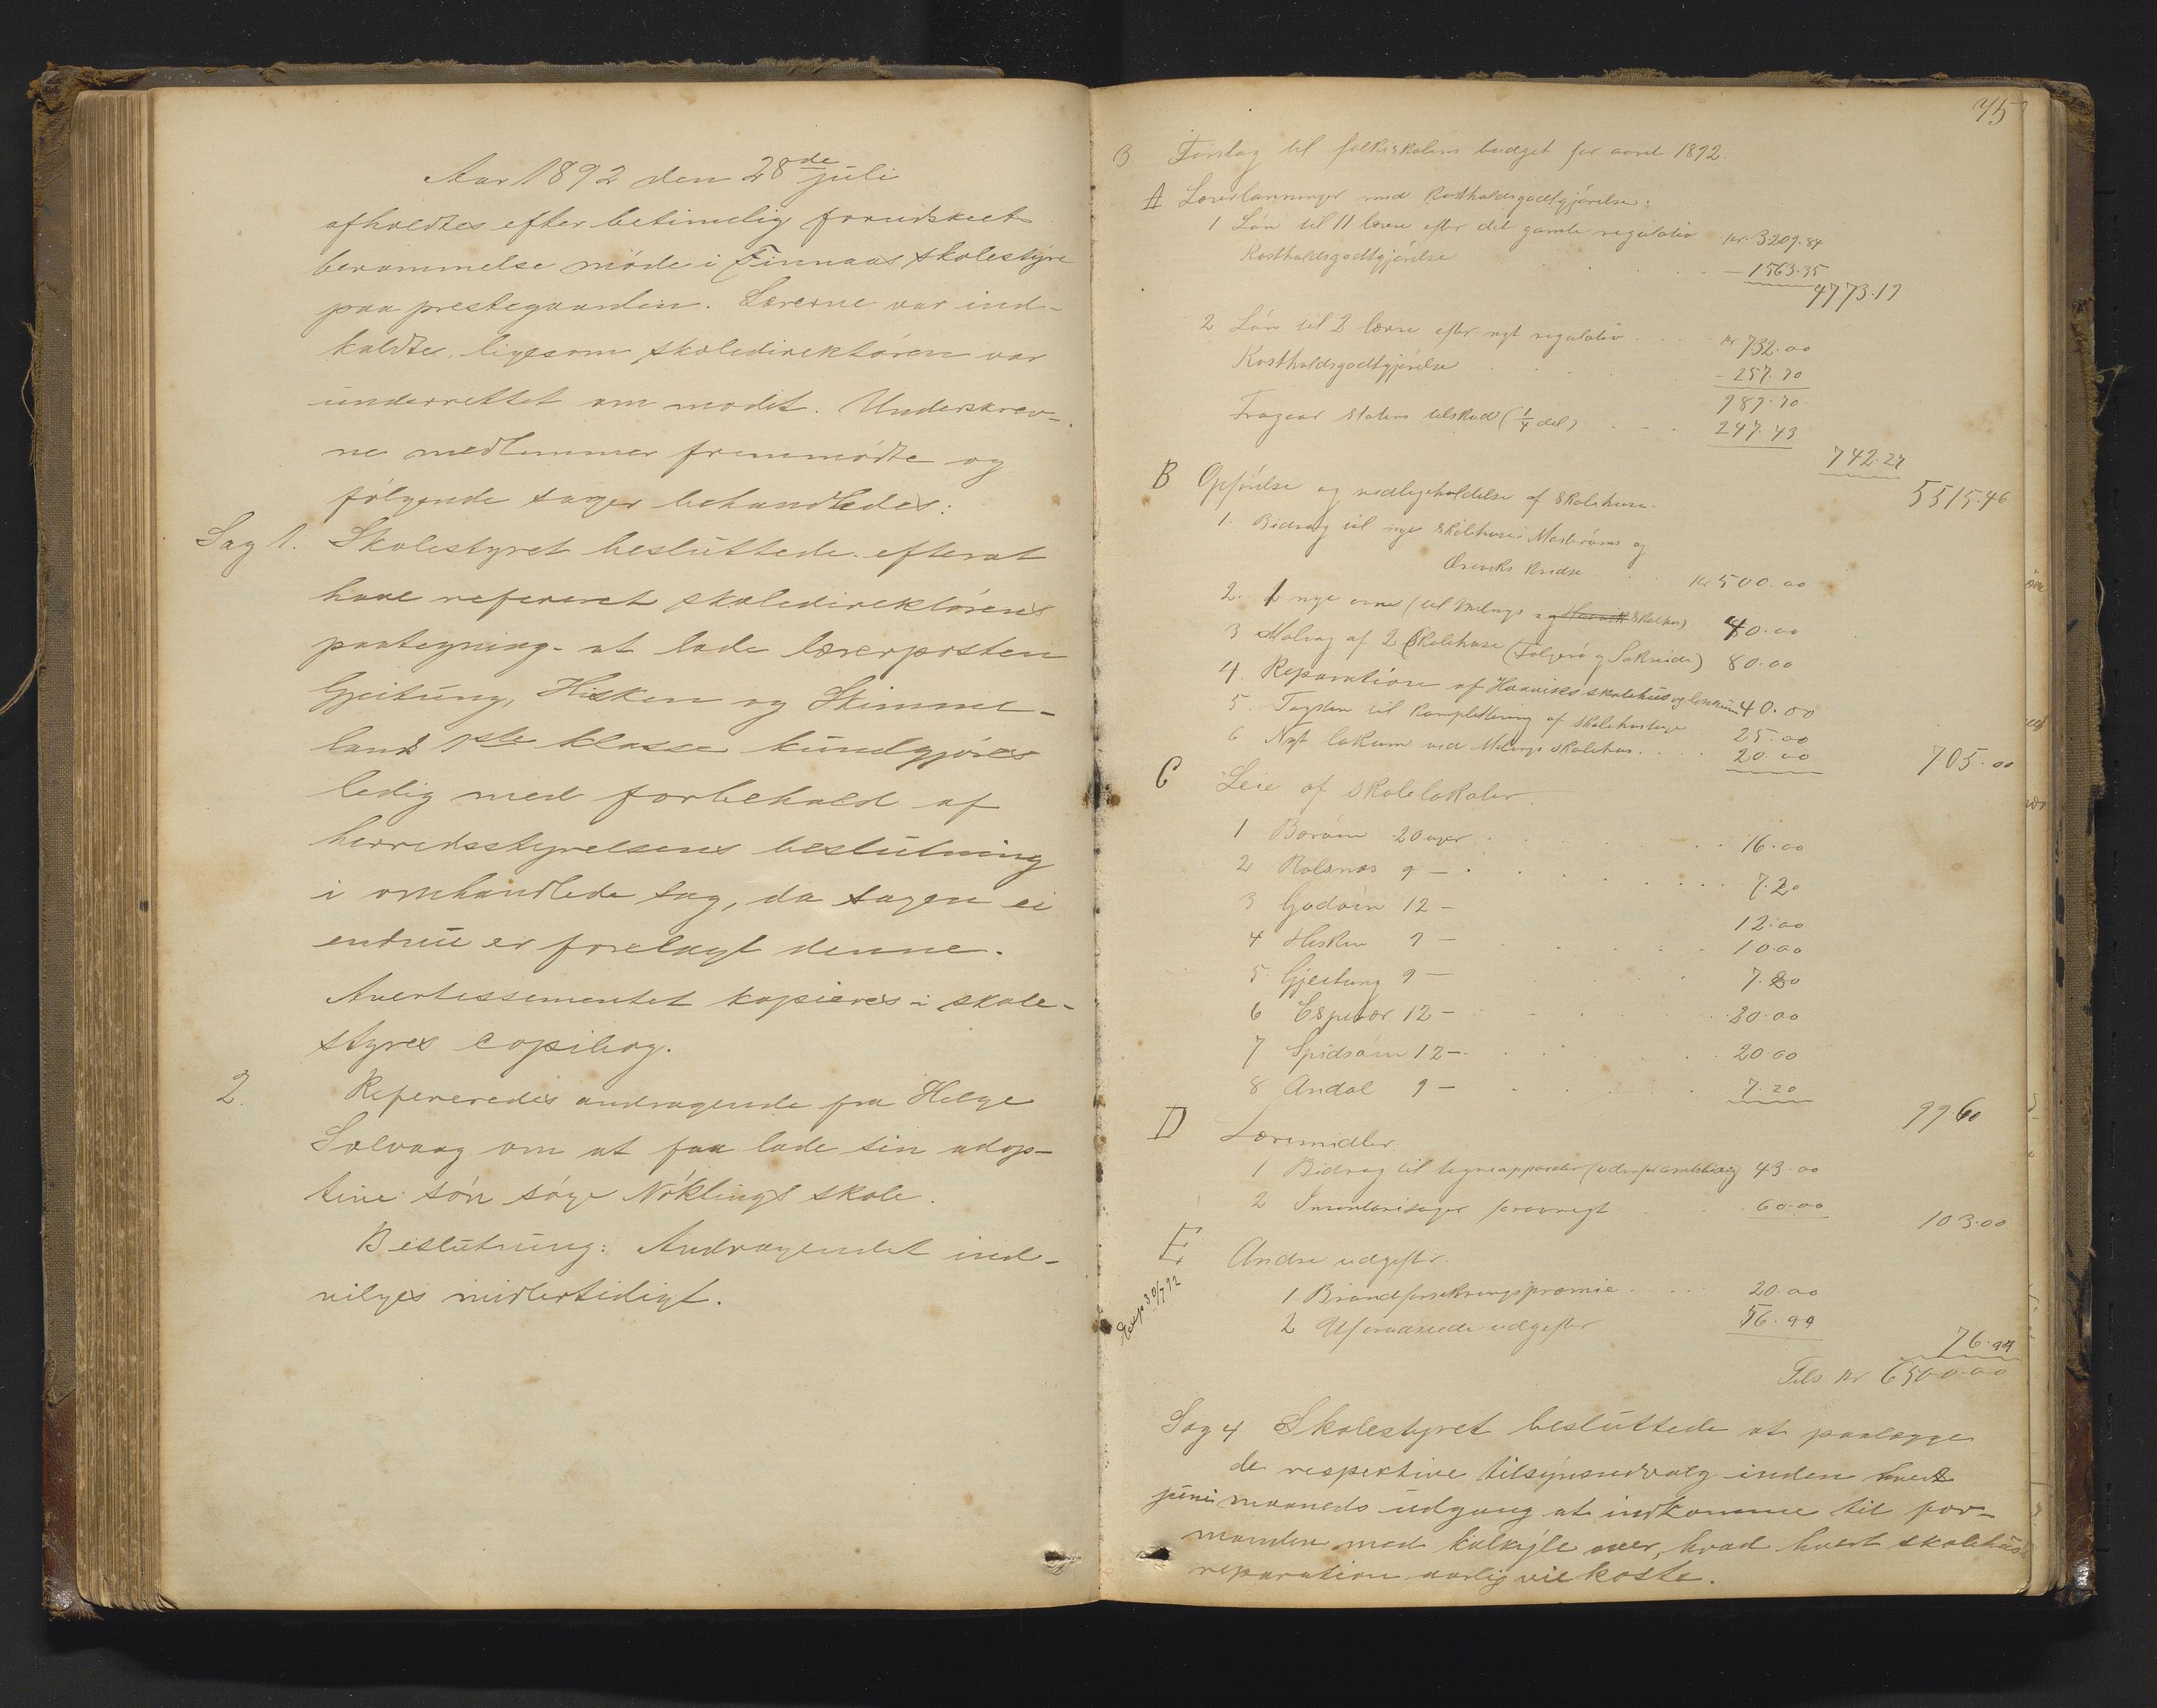 Aar 1892 den 28de juli
afholdtes efter betimelig forudskeet
berammelse möde i Finnaas skolestyre
paa prestegaarden. Lærerne var ind-
kaldte, ligesom skoledirektören var
underrettet om mödet. Underskrev-
ne medlemmer fremmödte og
fölgende sager behandledes:
Sag 1. Skolestyret besluttede efterat
have refereret skoledirektörens
paategning at lade lærerposten
Gjeitung, Hisken og Stimme-
land 1ste klasse kundgjöres
ledig med forbehold af
herredsstyrelsens beslutning
i omhandlede sag, da sagen ei
endnu er forelagt denne.
Avertissementet kopieres i skole-
styres copibog.
2. Refereredes andragende fra Helge
Solvaag om at faa lade sin adop-
tive sön söge Nöklings skole.
Beslutning: Andragendet ind-
vilges midlertidigt.
75
3. Forslag til folkeskolens budget for aaret 1892.
A Lærerlønninger med Kostholdsgodtgjörelse:
1 Lön til 11 lærere efter det gamle regulativ kr. 3209.84
Kostholdsgodtgjörelse — 1563.35
4773.19
2 Lön til 2 lærere efter nyt regulativ kr 732.00
Kostholdsgodtgjörelse - 257.70
989.70
Fragaar Statens tilskud (1/4 del) 247.43
742.27
5515.46
B Opförelse og vedligeholdelse af Skolehuse.
1. Bidrag til nye Skolehuse i Mosteröens og
Öreviks Kredse kr 500.00
2. 1 nye ovne (til Mælings og Haavik Skolehus) 40.00
3 Maling af 2 Skolehuse (Folgerö og Sakseide) 80.00
4. Reparation af Haaviks skolehus og lokum 40.00
5. Tagsten til Komplettering af Skolehustage 25.00
6 Nyt lokum ved Mælings Skolehus 20.00
705.00
C Leie af Skolelokaler.
1 Boröen 20 uger 16.00
2 Rolsnæs 9 — 7.20
3 Godöin 12 — 12.00
4 Hisken 9 — 10.00
5. Gjeitung 9 — 7.20
6 Espevær 12 — 20.00
7 Spidsöen 12 — 20.00
8 Andal 9 — 7.20
99.60
D Læremidler.
1 Bidrag til tegneapparater (udenfor amtsbidrag) 43.00
2 Inventarisager forøvrigt 60.00
103.00
E Andre udgifter.
Exp 30/7 92
1 Brandforsikringspræmie 20.00
2 Uforudseede udgifter 56.94
76.94
Tils kr 6500.00
Sag 4 Skolestyret besluttede at paalægge
de respektive tilsynsudvalg inden hvert
juni maaneds udgang at indkomme til for-
manden med kalkyle over, hvad hvert skolehus
reparation aarlig vil koste.